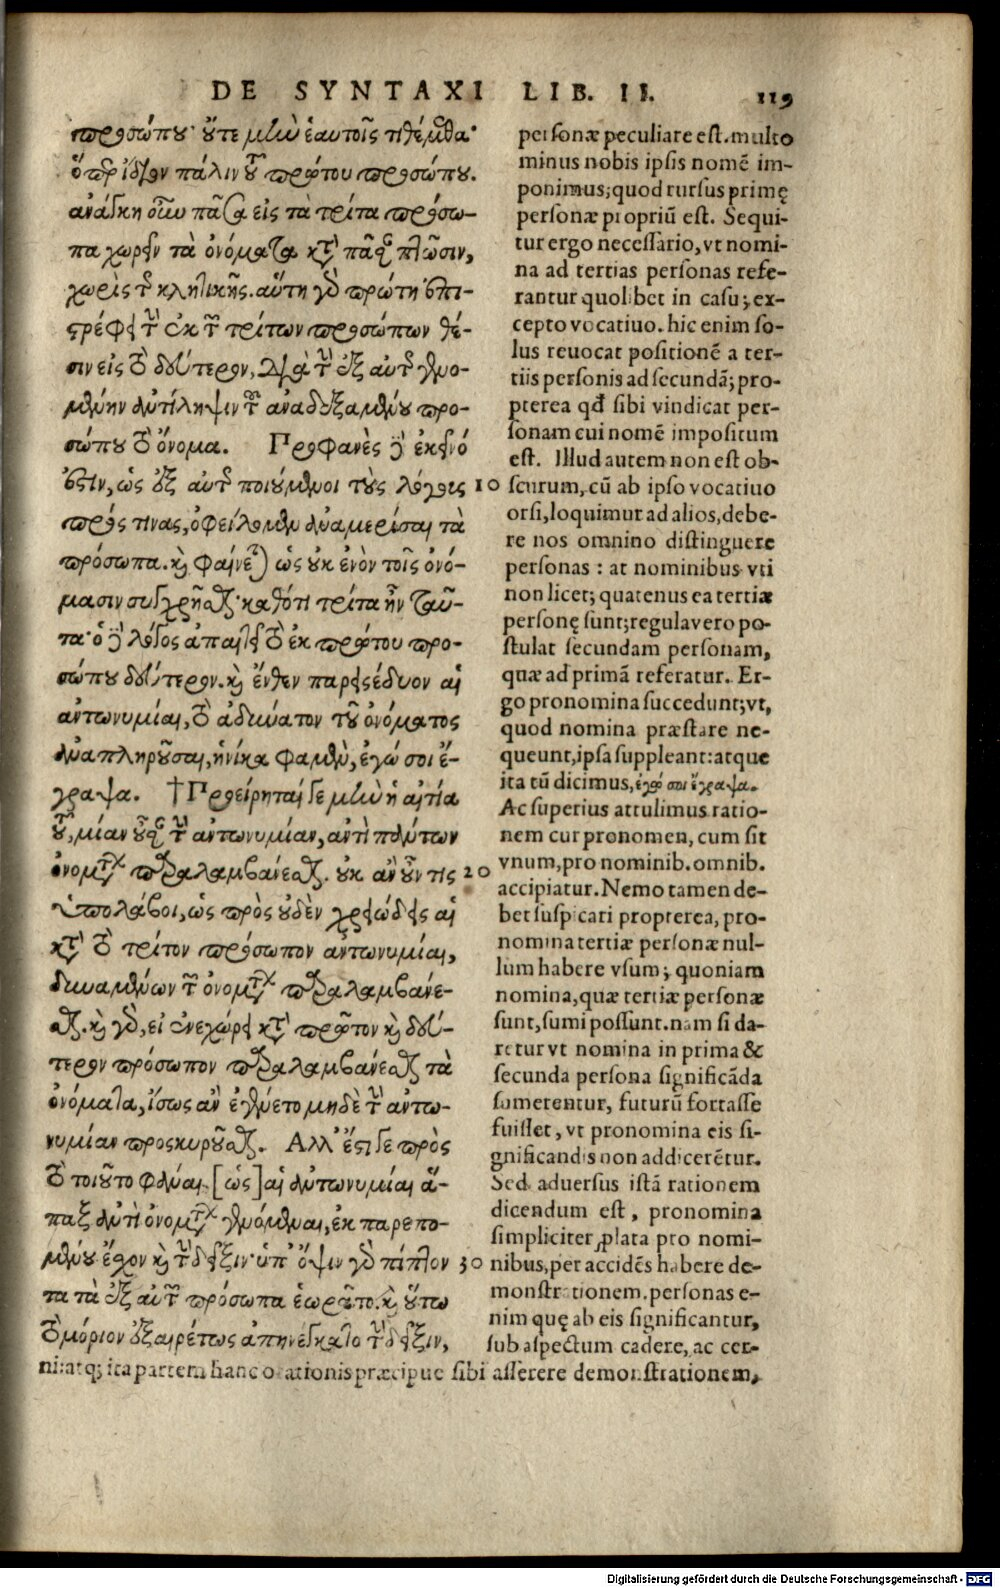 DE SYNTAXI LIB. II. 119
προσώπου· οὔτε μὴν ἑαυτοῖς τιθέμεθα·
ὅπερ ἴδιον πάλιν τοῦ πρώτου προσώπου.
ἀνάγκη οὖν πᾶσα εἰς τὰ τρίτα πρόσω-
πα χωρεῖν τὰ ὀνόματα κατὰ πᾶσαν πτῶσιν,
χωρὶς τῆς κλητικῆς. αὕτη γὰρ πρώτη ἐπι-
στρέφει τὴν ἐκ τῶν τρίτων προσώπων θέ-
σιν εἰς τὸ δεύτερον, διὰ τὴν ἐξ αὐτῆς γινο-
μένην ἀντίληψιν τοῦ ἀναδεξαμένου προ-
σώπου τὸ ὄνομα. Προφανὲς δὲ ἐκεῖνό
ἐστιν, ὡς ἐξ αὐτῆς ποιούμενοι τοὺς λόγους 10
πρός τινας, ὀφείλομεν διαμερίσαι τὰ
πρόσωπα. καὶ φαίνεται ὡς οὐκ ἐνὸν τοῖς ὀνό-
μασιν συγχρῆσθαι· καθότι τρίτα ἦν ταῦ-
τα· ὁ δὲ λόγος ἀπαιτεῖ τὸ ἐκ πρώτου προ-
σώπου δεύτερον. καὶ ἔνθεν παρεισέδυον αἱ
ἀντωνυμίαι, τὸ ἀδύνατον τοῦ ὀνόματος
ἀναπληροῦσαι, ἡνίκα φαμὲν, ἐγώ σοι ἔ-
γραψα. †Προείρηται δὲ μὲν ἡ αἰτία
τοῦ, μίαν οὖσαν τὴν ἀντωνυμίαν, ἀντὶ πάντων
ὀνομάτων παραλαμβάνεσθαι. οὐκ ἂν οὖν τις 20
ὑπολάβοι, ὡς πρὸς οὐδὲν χρειώδεις αἱ
κατὰ τὸ τρίτον πρόσωπον ἀντωνυμίαι,
δυναμένων τῶν ὀνομάτων παραλαμβάνε-
σθαι. καὶ γὰρ, εἰ ἐνεχώρει κατὰ πρῶτον καὶ δεύ-
τερον πρόσωπον παραλαμβάνεσθαι τὰ
ὀνόματα, ἴσως ἂν ἐγένετο μηδὲ τὴν ἀντω-
νυμίαν προσκυροῦσθαι. Ἀλλ' ἔστι γε πρὸς
τὸ τοιοῦτο φάναι, [ὡς] αἱ ἀντωνυμίαι ἅ-
παξ ἀντὶ ὀνομάτων γενόμεναι, ἐκ παρεπο-
μένου ἔσχον καὶ τὴν δεῖξιν· ὑπ' ὄψιν γὰρ πίπτον 30
τα τὰ ἐξ αὐτῶν πρόσωπα ἑωρᾶτο. καὶ οὕτω
τὸ μόριον ἐξαιρέτως ἀπηνέγκατο τὴν δεῖξιν,
personæ peculiare est. multo
minus nobis ipsis nomē im-
ponimus; quod rursus primę
personæ propriū est. Sequi-
tur ergo necessario, vt nomi-
na ad tertias personas refe-
rantur quolibet in casu; ex-
cepto vocatiuo. hic enim so-
lus reuocat positionē a ter-
tiis personis ad secundā; pro-
pterea qđ sibi vindicat per-
sonam cui nomē impositum
est. Illud autem non est ob-
scurum, cū ab ipso vocatiuo
orsi, loquimur ad alios, debe-
re nos omnino distinguere
personas : at nominibus vti
non licet; quatenus ea tertiæ
personę sunt; regula vero po-
stulat secundam personam,
quæ ad primā referatur. Er-
go pronomina succedunt; vt,
quod nomina præstare ne-
queunt, ipsa suppleant: atque
ita tū dicimus, ἐγώ σοι ἔγραψα.
Ac superius attulimus ratio-
nem cur pronomen, cum sit
vnum, pro nominib. omnib.
accipiatur. Nemo tamen de-
bet suspicari propterea, pro-
nomina tertiæ personæ nul-
lum habere vsum; quoniam
nomina, quæ tertiæ personæ
sunt, sumi possunt. nam si da-
retur vt nomina in prima &
secunda persona significāda
sumerentur, futurū fortasse
fuisset, vt pronomina eis si-
gnificandis non addicerētur.
Sed aduersus istā rationem
dicendum est, pronomina
simpliciter ꝓlata pro nomi-
nibus, per accidēs habere de-
monstrationem. personas e-
nim quę ab eis significantur,
sub aspectum cadere, ac cer-
ni: atq; ita partem hanc orationis præcipue sibi asserere demonstrationem,
Digitalisierung gefördert durch die Deutsche Forschungsgemeinschaft - DFG